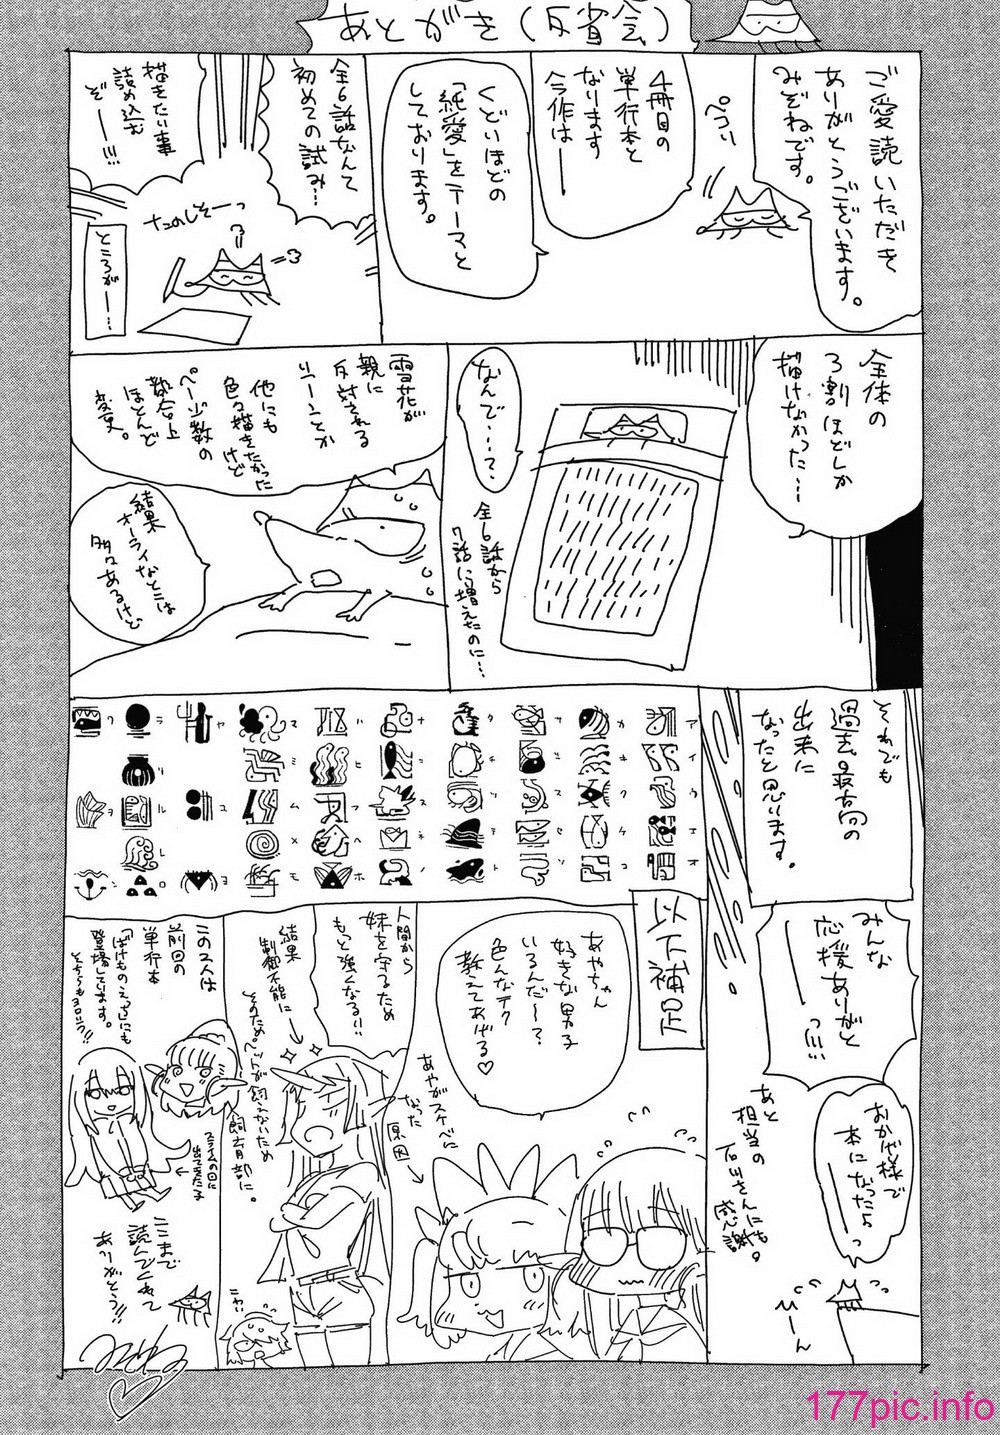 あとがき（反省会）
ご愛読いただき
ありがとうございます。
みぞねです。
ぺこり
4冊目の
単行本と
なります
今作は――
くどいほどの
「純愛」をテーマと
しております。
全6話なんて
初めての試み…
描きたい事
詰め込む
ぞ――!!!
たのしそーっ
ところが―…
全体の
3割ほどしか
描けなかった…
なんで……？
全6話から
7話に増えたのに…
雪花が
親に
反対される
シーンとか
他にも
色々描きたかった
けど
ページ数の
都合上
ほとんど
変更。
結果
オーライなとこは
多々あるけど
それでも
過去最高の
出来に
なったと思います。
ア
イ
ウ
エ
オ
カ
キ
ク
ケ
コ
サ
シ
ス
セ
ソ
みんな
応援ありがと
――っ!!!!
おかげ様で
本になったよ
――っ
あと
担当の
感謝。
ひーん
以下補足
あやちゃん
好きな男子
いるんだ～？
色んなテク
教えてあげる♡
あやがスケベに
なった
原因→
人間から
妹を守るため
もっと強くなる!!
結果
制御不能に
そのため。ペットが飼えないため
飼育部に。
ニャ…
この2人は
前回の
単行本
「ばけものえっち」にも
登場しています。
そちらもヨロシク!!
スライムの回に
出てきた子
ここまで
読んでくれて
ありがとう!!
みぞね
177pic.info